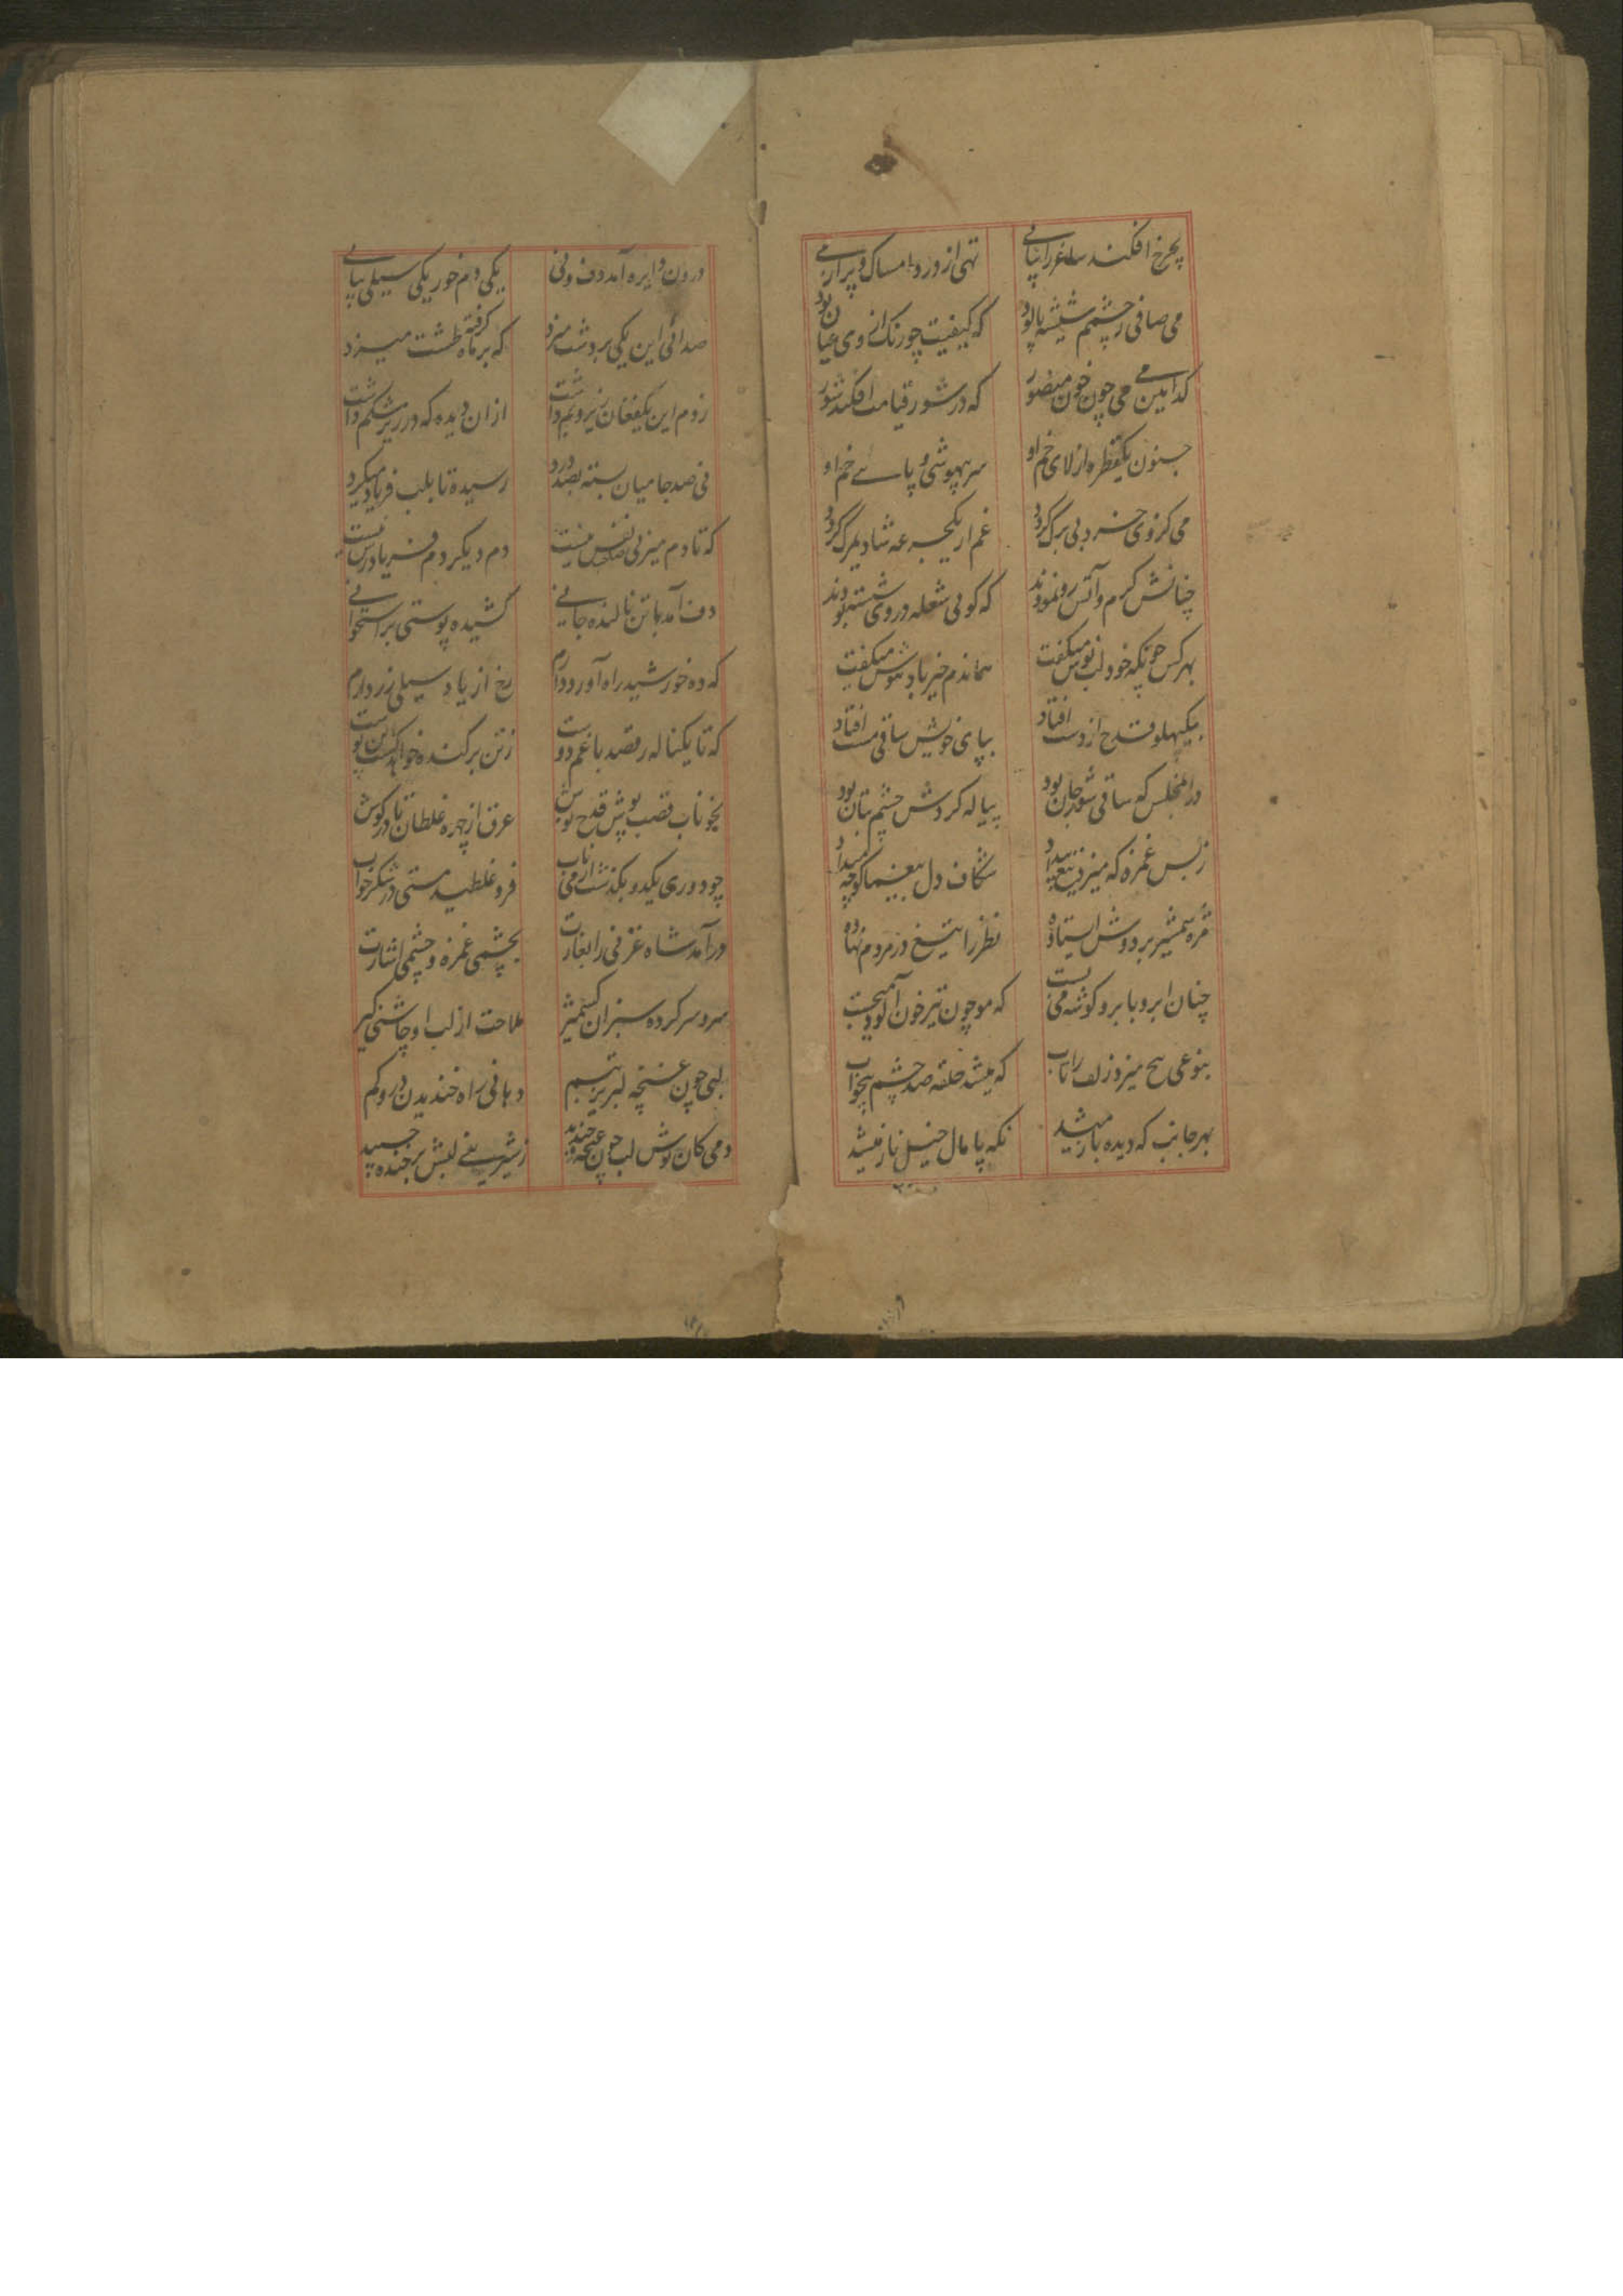 بچرخ افکند ساغر را پیاپی تهی از درد امساک و پر از می
می صافی ز چشم شیشه پالود که کیفیت چو رنگ از وی عیان بود
کدامین می می چون خون منصور که در شور قیامت افکند شور
جنون یکقطره از لای خم او سر بیهوشی و پای خم او
می کز وی خرد بی برک کردد غم از یکجرعه شادیمرک کردد
چنانش کرم و آتش رو نمودند که کوئی شعله در وی شسته بودند
بهر کس چونکه خود لب نوش میکفت هماندم خیر باد هوش میکفت
بیکپهلو قدح از دست افتاد بپای خویش ساقی مست افتاد
در انمجلس که ساقی شور جان بود پیاله کردش چشم بتان بود
ز بس غمزه که میزد تیغ بیداد شکاف دل بیغما کوچه میداد
مژه شمشیر بر دوش ایستاده نظر را تیغ در مردم نهاده
چنان ابرو بابرو کوشه می بست که مو چون تیر خون آلود می‌جست
بنوعی پیچ میزد زلف را تاب که میشد حلقه صد چشم بیخواب
بهر جانب که دیده باز میشد نکه پامال خیل ناز میشد
درون دایره آمد دف و نی یکی دم خور یکی سیلی پیاپی
صدائی این یکی بر دشت میزد که بر ماه کرفته طشت میزد
ز دم این یکفغان زیر و بم داشت از ان دیده که در زیر شکم داشت
نی صد جا میان بسته بصد درد رسیده تا بلب فریاد میکرد
که تا دم میزنی نفس نیست دم دیکر دم فریادرس نیست
دف آمد با تن نالنده جانی کشیده پوستی بر استخوانی
که ده خورشید راه آورد دارم رخ از یاد سیلی زرد دارم
که تا یکناله رقصد با غم دوست ز تن برکنده خواهد کشت این پوست
بخوناب قصب پوش قدح نوش عرق از چهره غلطان تا در کوش
چو دوری یکدو بکذشت از می ناب فرو غلطید مستی در شکر خواب
در آمد شاه غزنی را بغارت بچشمی غمزه و چشمی اشارت
سر و سر کرده سبزان کشمیر ملاحت از لب او چاشنی کیر
لبی چون غنچه لبریز تبسم دهانی راه خندیدن درو کم
دمی کان نوش لب چون غنچه خندید ز شیرینی لبش بر خنده چسپید